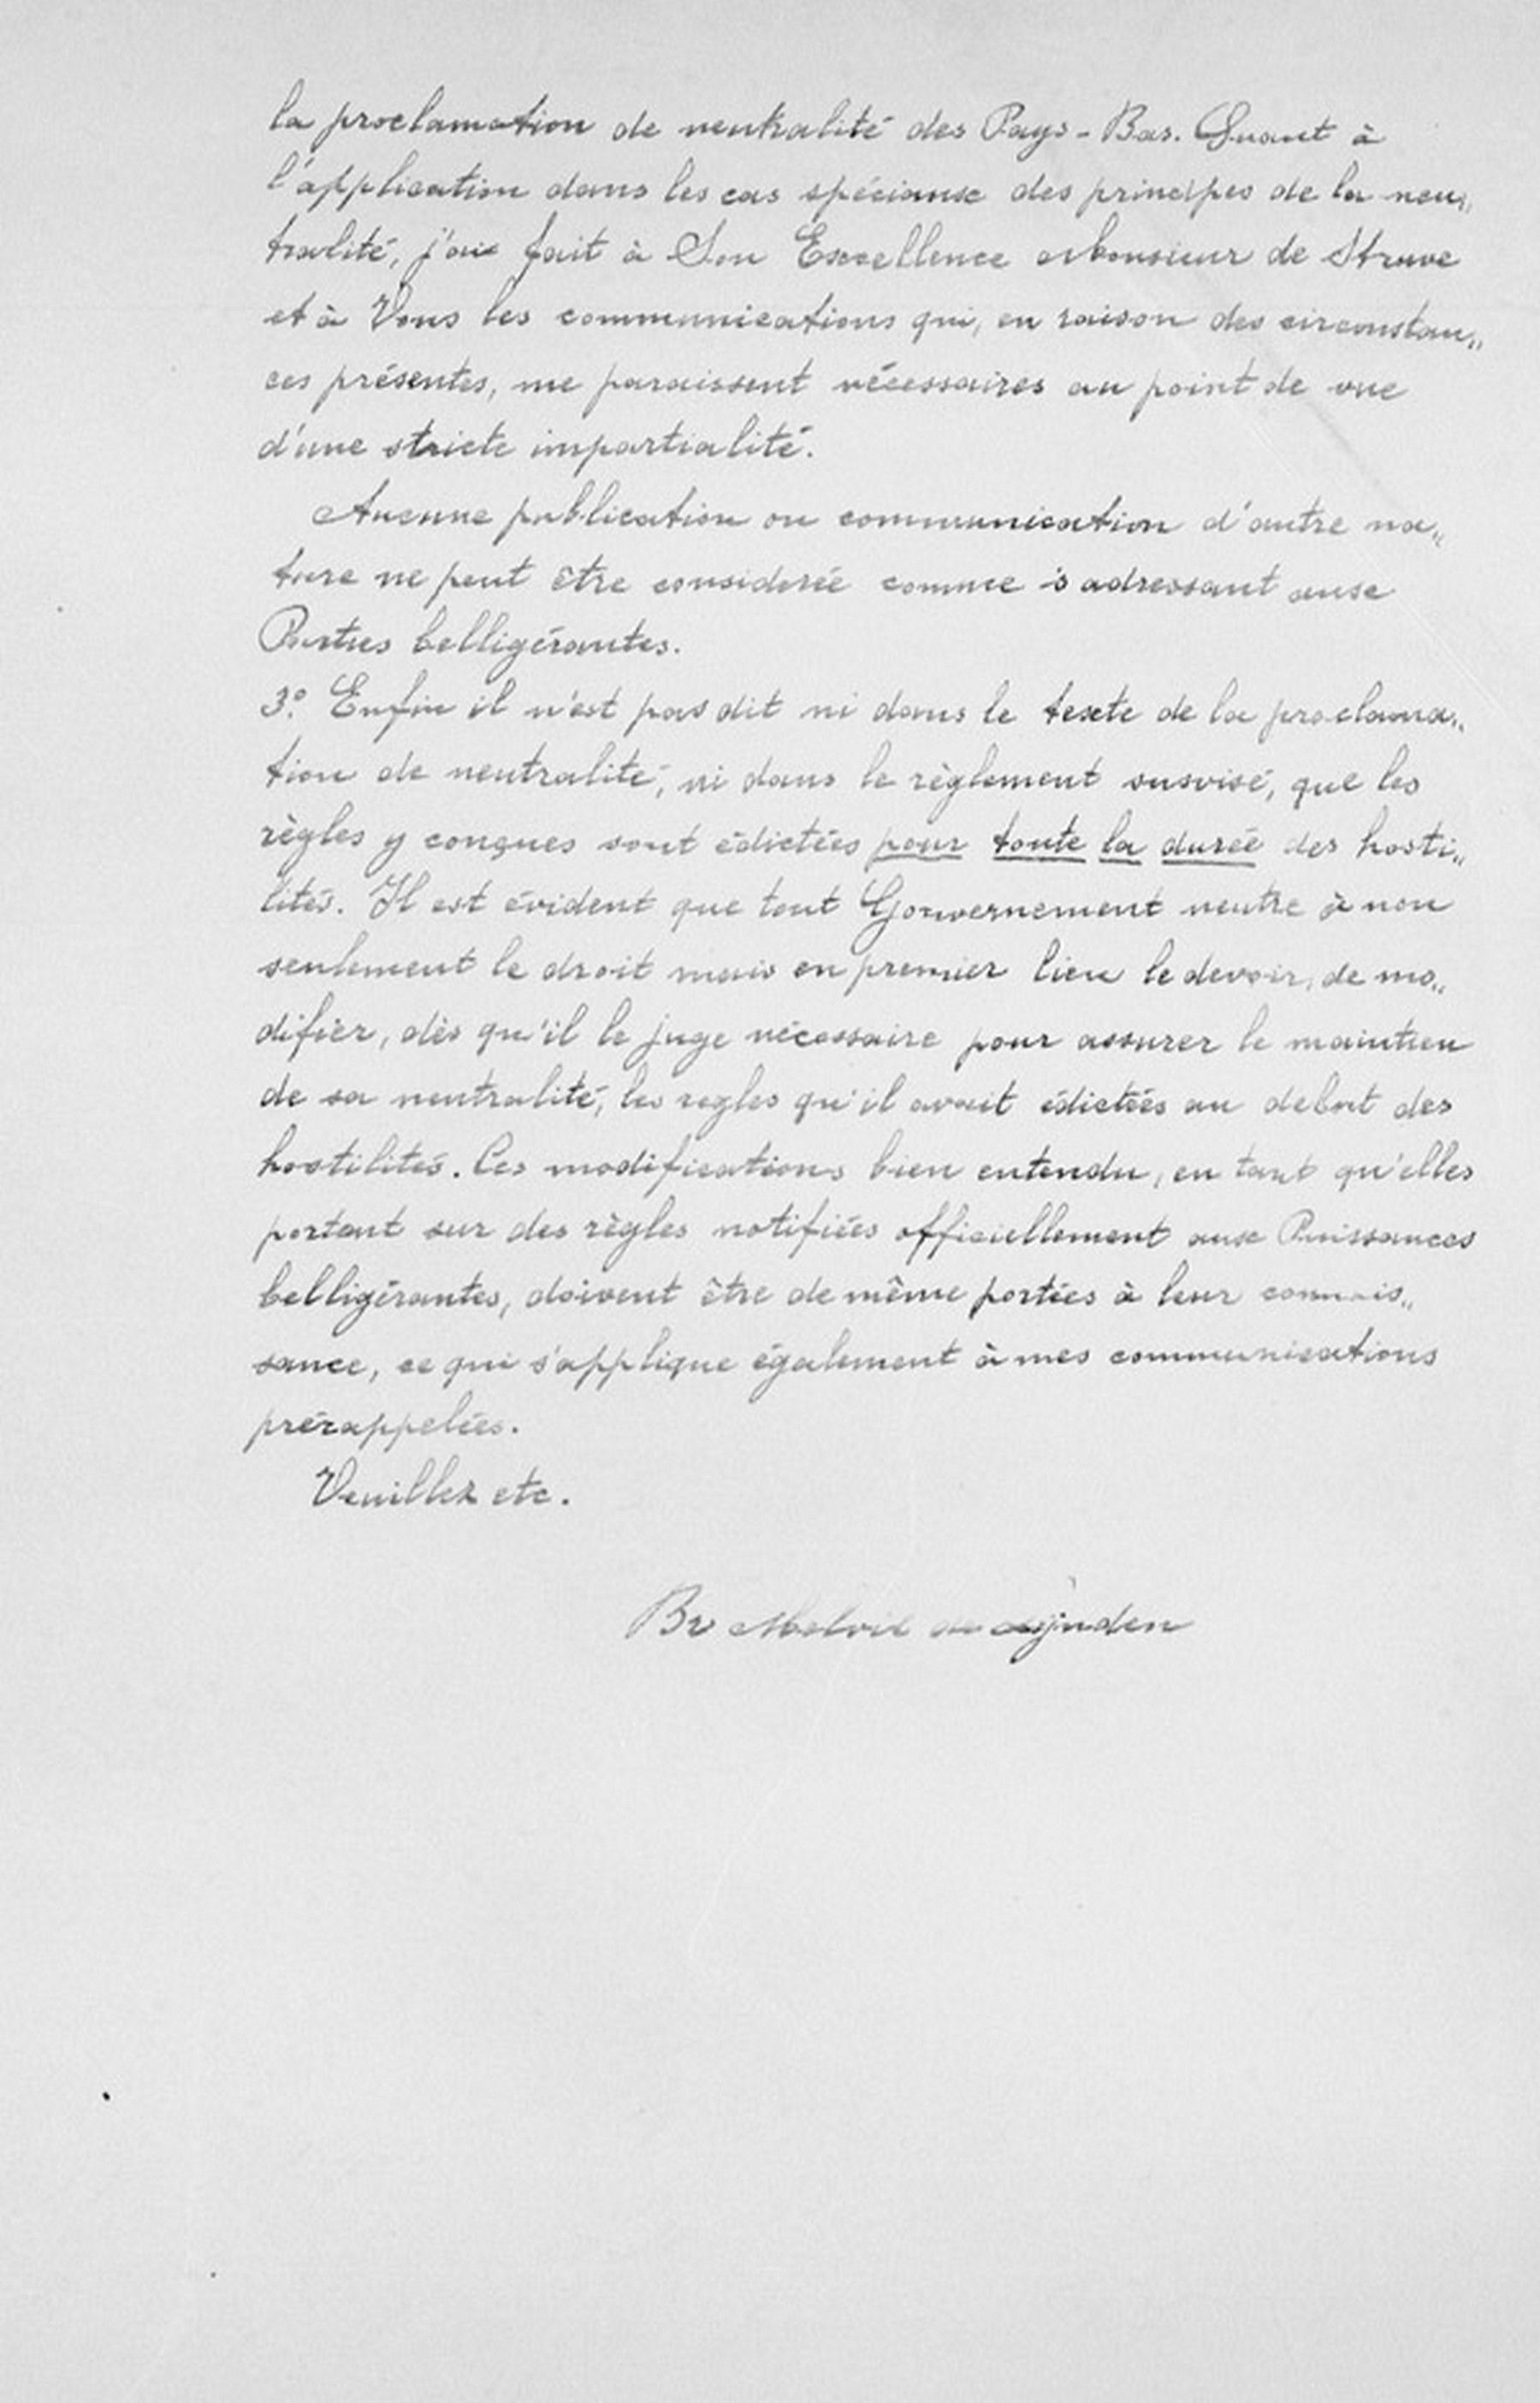 la proclamation de neutralité des Pays-Bas. Quant à
l'application dans les cas spéciaux des principes de la neu„
tralité, j'ai fait à Son Excellence Monsieur de Struve
et à Vous les communications qui, en raison des circonstan„
ces présentes, me paraissent nécessaires au point de vue
d'une stricte impartialité.
Aucune publication ou communication d'autre na„
ture ne peut être considerée comme s'adressant aux
Parties belligérantes.
3º. Enfin il n'est pas dit ni dans le texte de la proclama„
tion de neutralité, ni dans le règlement susvisé, que les
règles y conçues sont édictées pour toute la durée des hosti„
lités. Il est évident que tout Gouvernement neutre à non
seulement le droit mais en premier lieu le devoir, de mo„
difier, dès qu'il le juge nécessaire pour assurer le maintien
de sa neutralité, les regles qu'il avait édictées au debut des
hostilités. Ces modifications bien entendu, en tant qu'elles
portent sur des règles notifiées officiellement aux Puissances
belligérantes, doivent être de même portées à leur connais„
sance, ce qui s'applique également à mes communications
prérappelées.
Veuillez etc.
Br Melvil de Lijnden